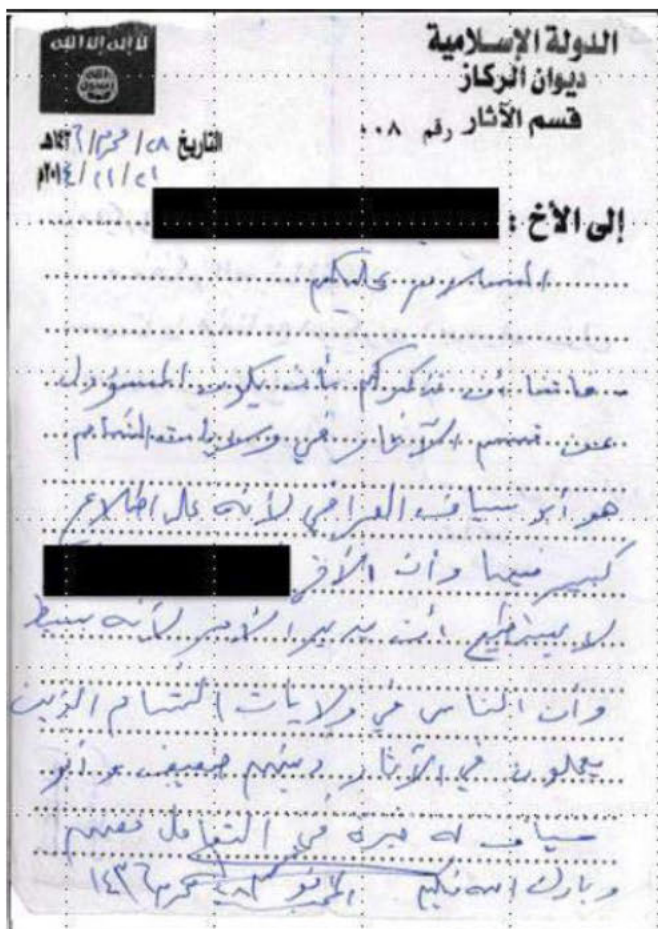 لا إله إلا الله
الله
رسول
محمد
الدولة الإسلامية
ديوان الركاز
قسم الآثار رقم ٠٠٨
التاريخ ٢٨/محرم/١٤٣٦هـ
٢١/١١/٢٠١٤م
إلى الأخ :
السلام عليكم
فاتنا أن نذكركم بأن يكون المسؤول
عن قسم الآثار في ولايات الشام
هو أبو سياف العراقي لأنه على اطلاع
كبير فيها وأن الأخ
لا يستطيع أن يدير الأمر لأنه بسيط
وأن الناس في ولايات الشام الذين
يعملون في الآثار دينهم ضعيف وأبو
سياف له خبرة في التعامل معهم
وبارك الله فيكم الموافق ٢٨ محرم ١٤٣٦